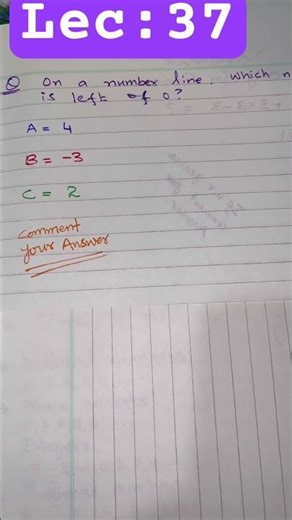 Lec:37
Q On a number line, which n
is left of 0?
A = 4
B = -3
C = 2
Comment
your Answer